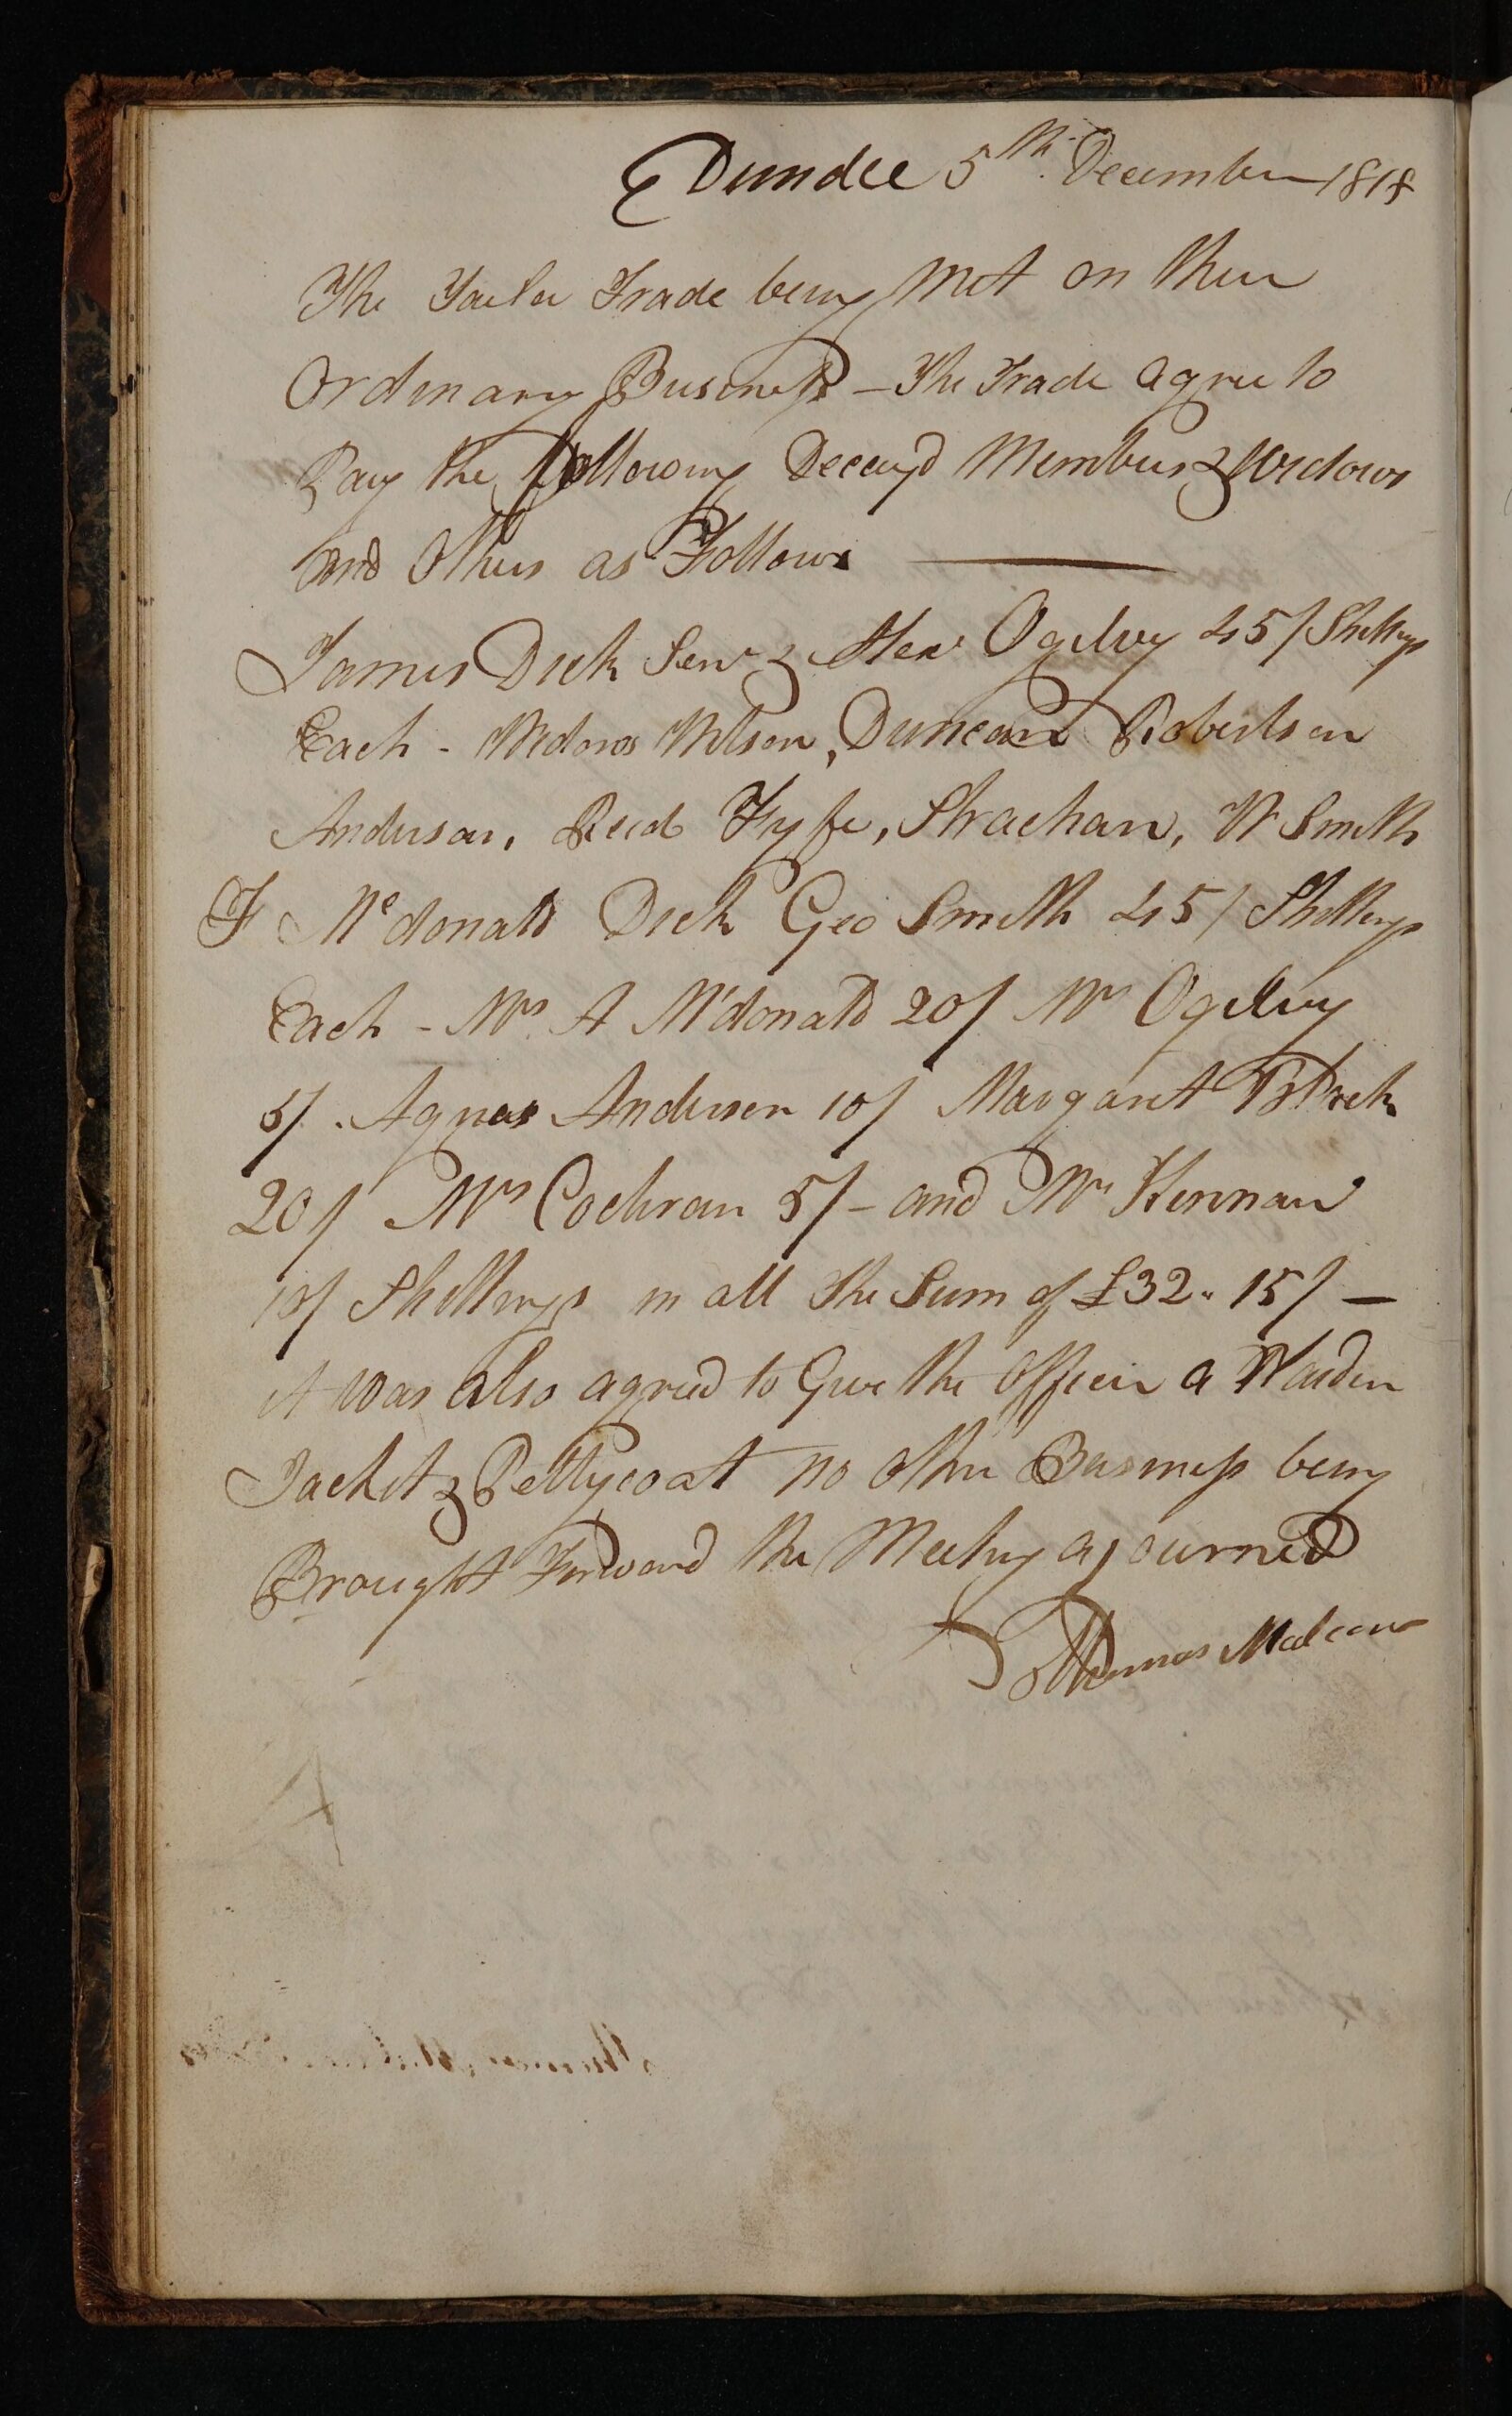 Dundee 5th December 1818
The Tailer Trade being Met on their
Ordinary Business – The Trade agree to
Pay the following Decay'd Members & Widows
and Others as Follows
James Dick Senr & Alexr Ogilvy 45/ Shillings
Each - Widows Wilson, Duncan Robertson
Anderson, Reid Fyfe, Strachan, W Smith
F McDonald Dick Geo Smith 45/ Shillings
Each - Mrs A McDonald 20/ Mrs Ogilvy
5/. Agnes Anderson 10/ Margaret
20/ Mrs Cochran 5/- and Mrs Kennan
15/ Shillings in all the Sum of £32. 15/ –
it was also agreed to Give the Officer a
Jacket & Pettycoat no other Business being
Brought Forward the Meeting ajourned
Thomas Malcom